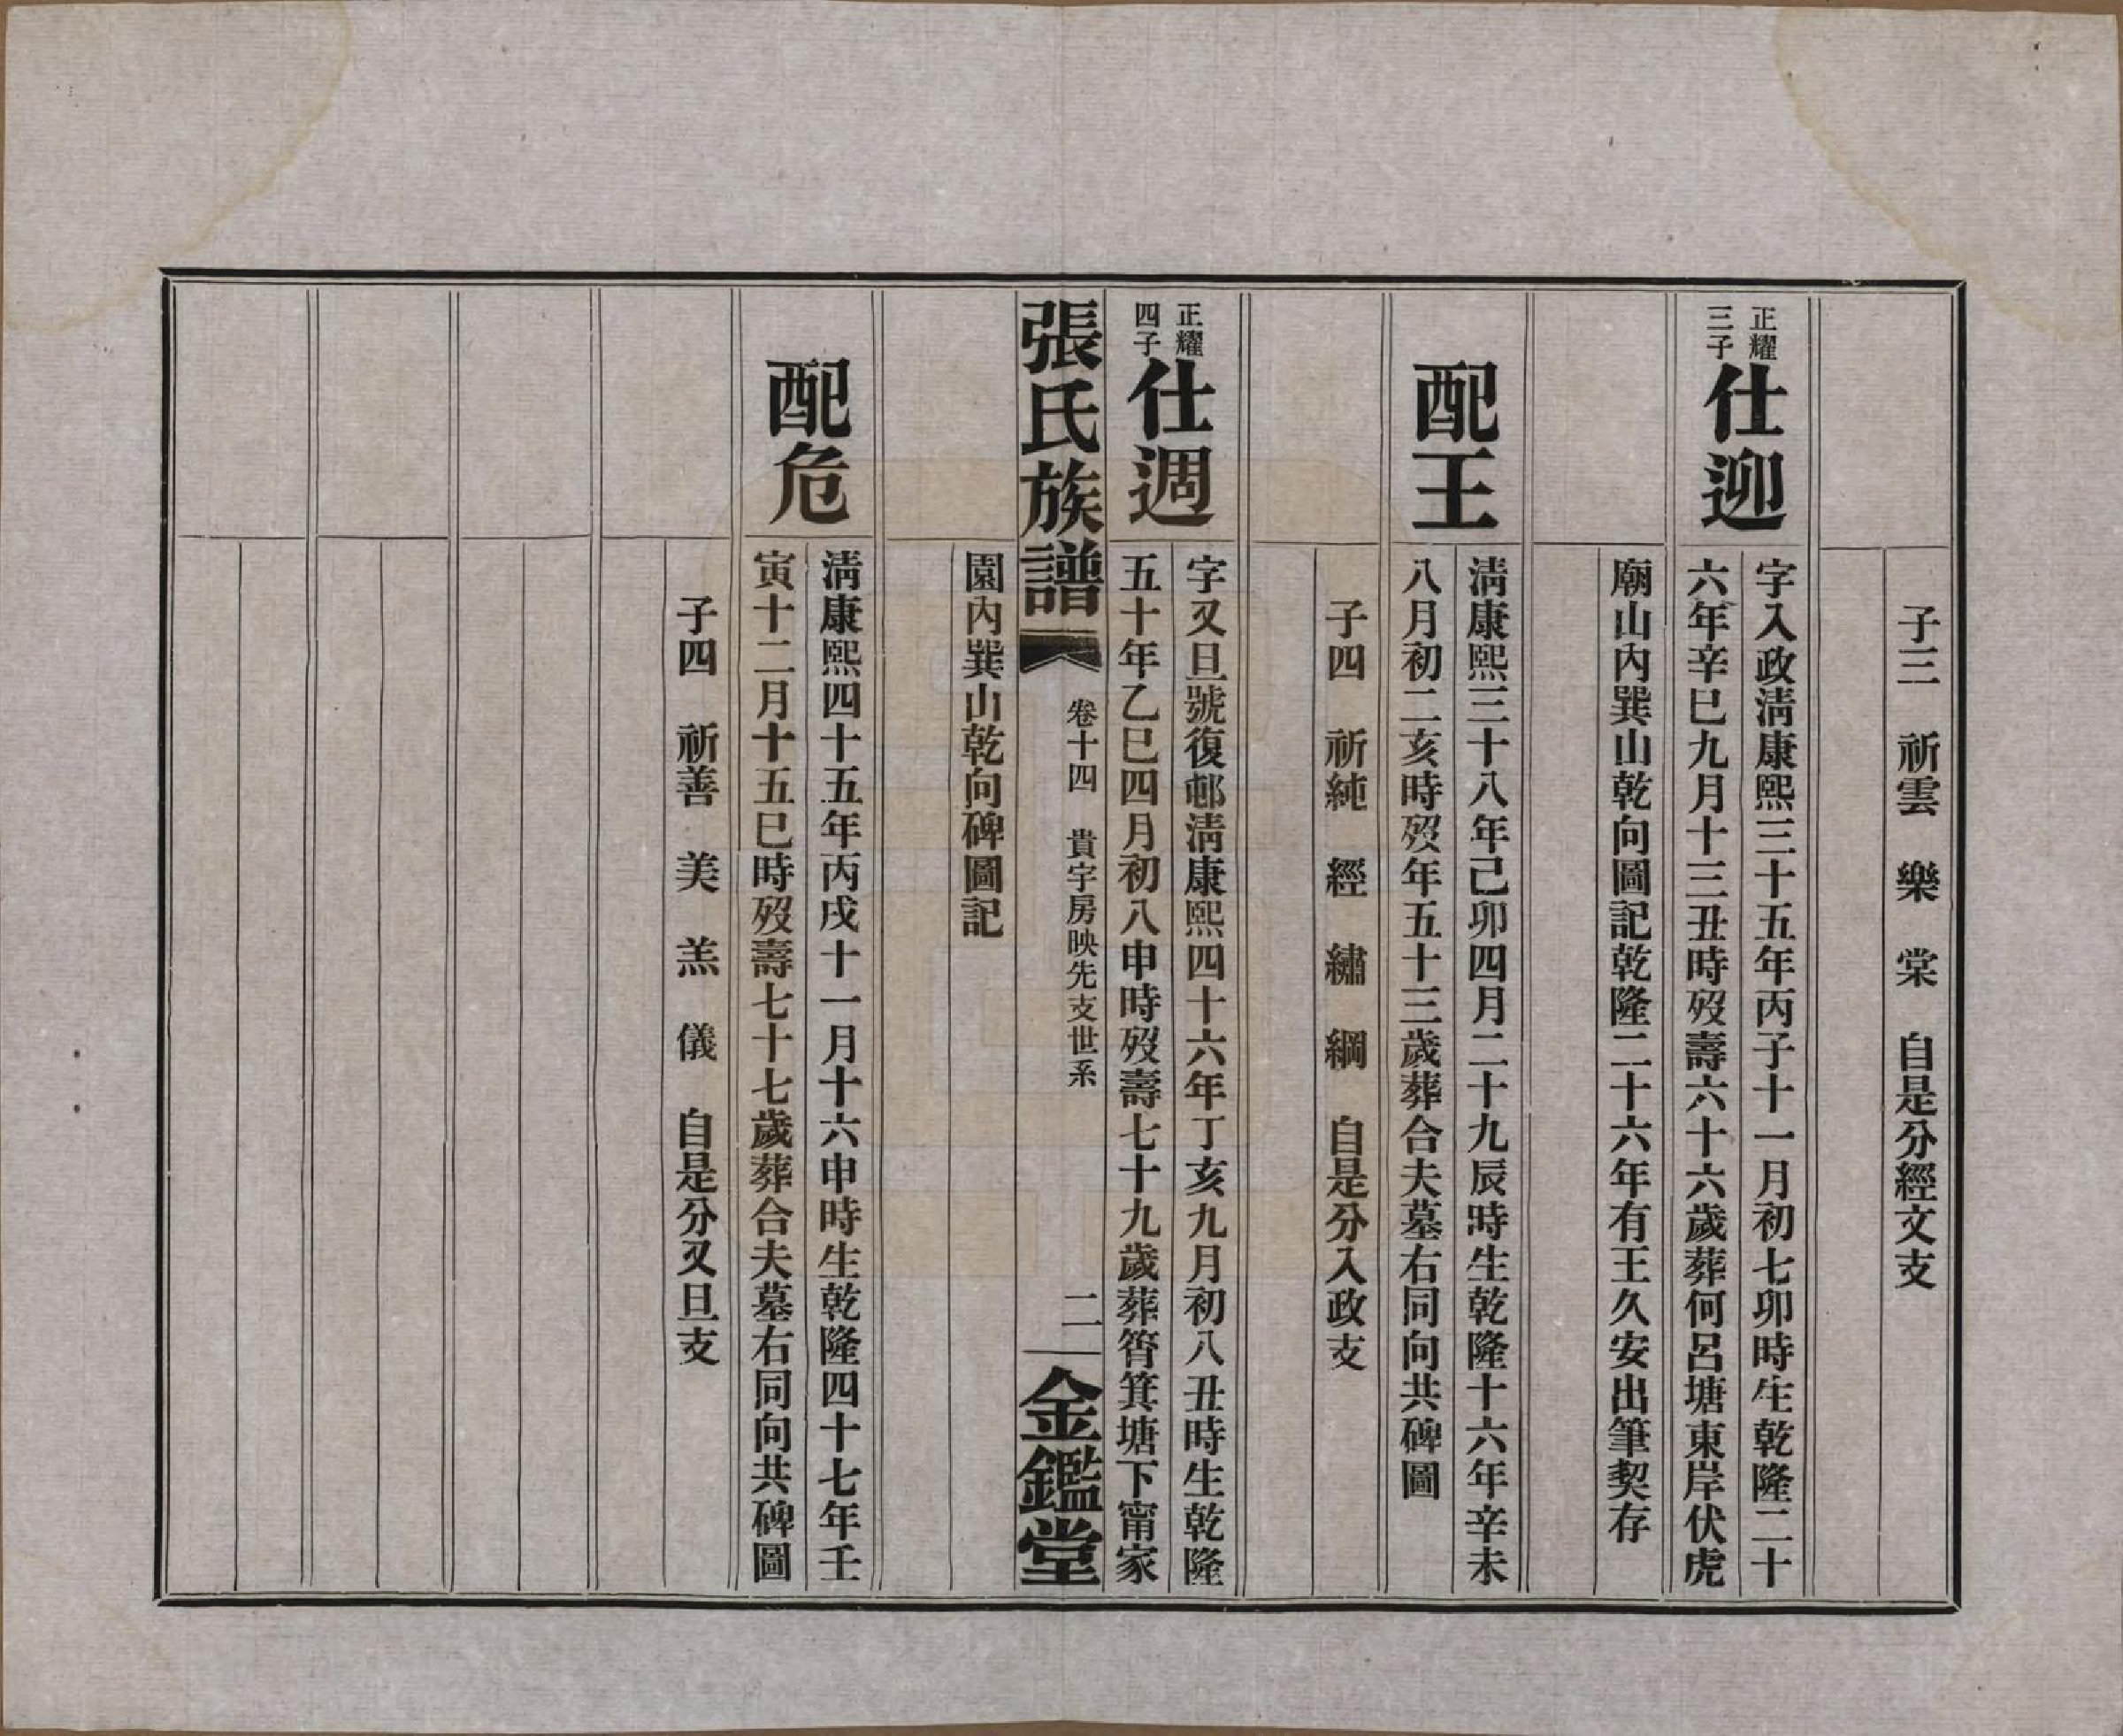 子三　祈雲　樂　棠　自是分經文支
正耀
三子
仕迎
字入政淸康熙三十五年丙子十一月初七卯時生乾隆二十
六年辛巳九月十三丑時歿壽六十六歲葬何呂塘東岸伏虎
廟山內巽山乾向圖記乾隆二十六年有王久安出筆契存
配王
淸康熙三十八年己卯四月二十九辰時生乾隆十六年辛未
八月初二亥時歿年五十三歲葬合夫墓右同向共碑圖
子四　祈純　經　繡　綱　自是分入政支
正耀
四子
仕週
字又旦號復邨淸康熙四十六年丁亥九月初八丑時生乾隆
五十年乙巳四月初八申時歿壽七十九歲葬筲箕塘下甯家
張氏族譜
卷十四　貴宇房映先支世系
二
金鑑堂
園內巽山乾向碑圖記
配危
淸康熙四十五年丙戌十一月十六申時生乾隆四十七年壬
寅十二月十五巳時歿壽七十七歲葬合夫墓右同向共碑圖
子四　祈善　美　羔　儀　自是分又旦支